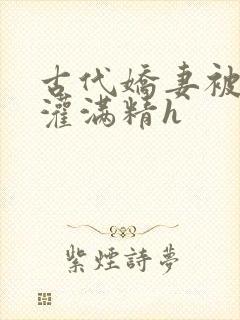 古代嬌妻被
灌滿精h
紫煙詩夢